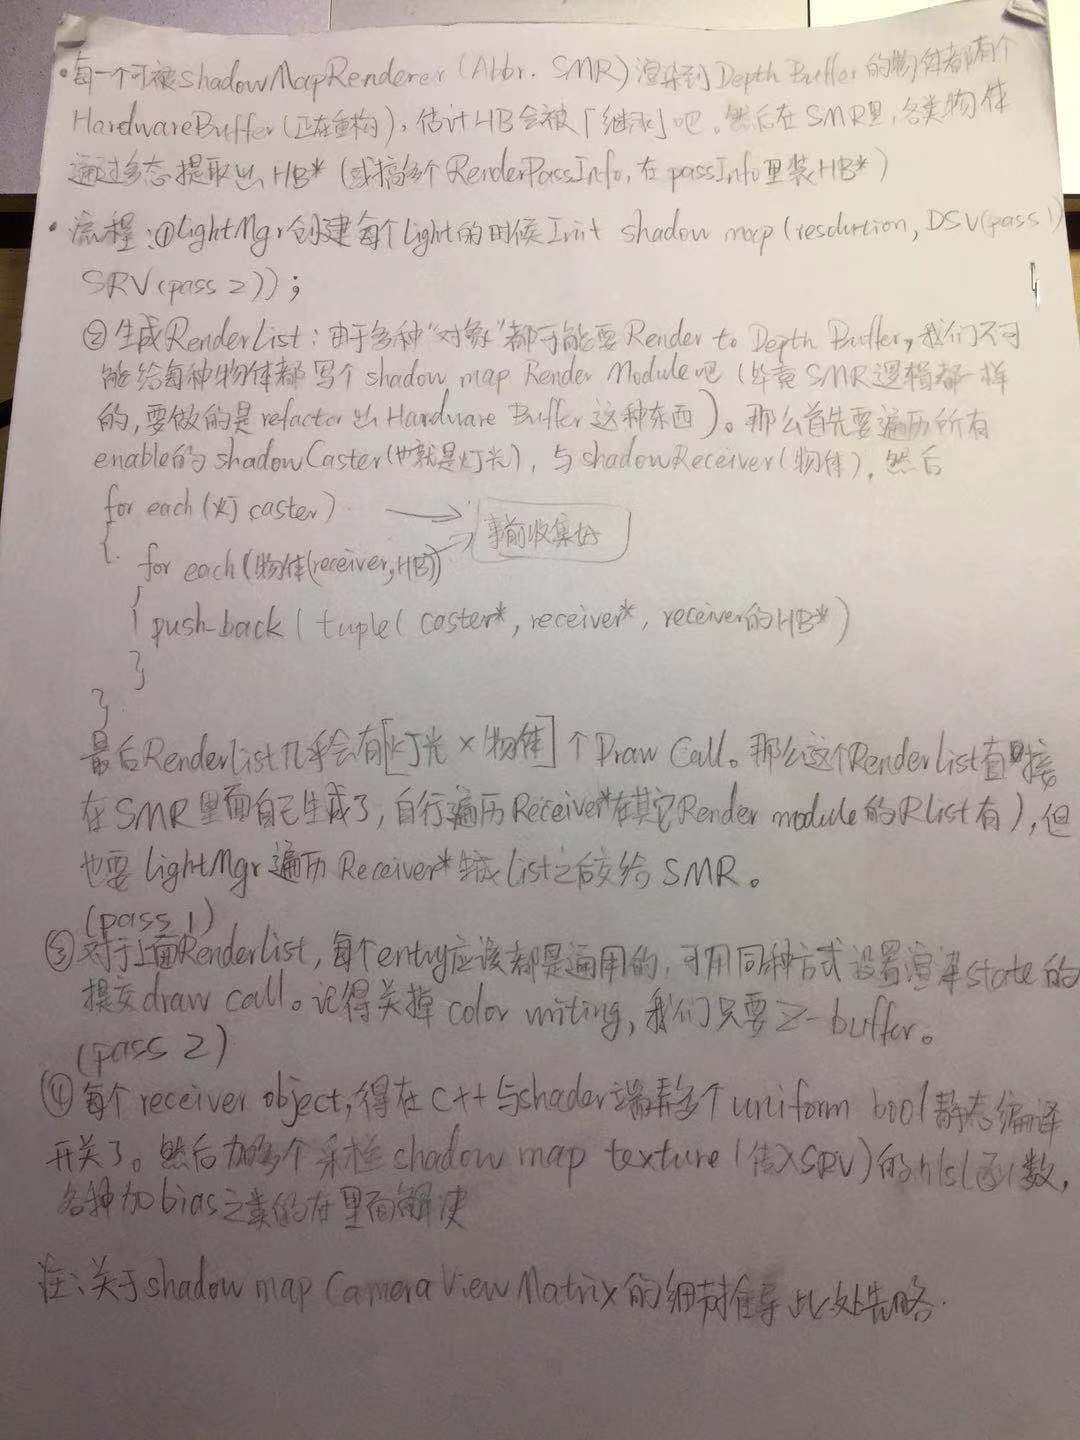 • 每一个可被ShadowMapRenderer (Abbr. SMR) 渲染到 Depth Buffer 的物体都有个
HardwareBuffer (正在重构), 估计HB会被「继承」吧。然后在SMR里,各类物体
通过多态提取出HB* (或搞多个RenderPassInfo, 在passInfo里装HB*)
• 流程: ①LightMgr创建每个Light的时候Init shadow map (resolution, DSV(pass 1)
SRV(pass 2));
②生成RenderList: 由于多种"对象"都可能要Render to Depth Buffer, 我们不可
能给每种物体都写个shadow map Render Module吧 (毕竟SMR逻辑都一样
的, 要做的是refactor出Hardware Buffer这种东西)。那么首先要遍历所有
enable的shadowCaster(也就是灯光), 与shadowReceiver(物体), 然后
for each(灯 caster)
{ 事前收集好
for each(物体(receiver,HB))
{ push-back ( tuple( caster*, receiver*, receiver的HB* )
}
}
最后RenderList几乎会有[灯光 × 物体]个Draw Call。那么这个RenderList直接
在SMR里面自己生成了, 自行遍历Receiver*在其它Render module的Rlist有), 但
也要LightMgr遍历Receiver* list之后交给SMR。
(pass 1)
③对于上面RenderList, 每个entry应该都是通用的, 可用同种方式设置渲染state的
提交draw call。记得关掉color writing, 我们只要Z-buffer。
(pass 2)
④每个receiver object, 得在C++与shader端弄多个uniform bool静态编译
开关了。然后加多个采样shadow map texture (传入SRV)的hlsl函数,
各种加bias之类的在里面解决
注: 关于shadow map Camera View Matrix的细节推导此处先略.